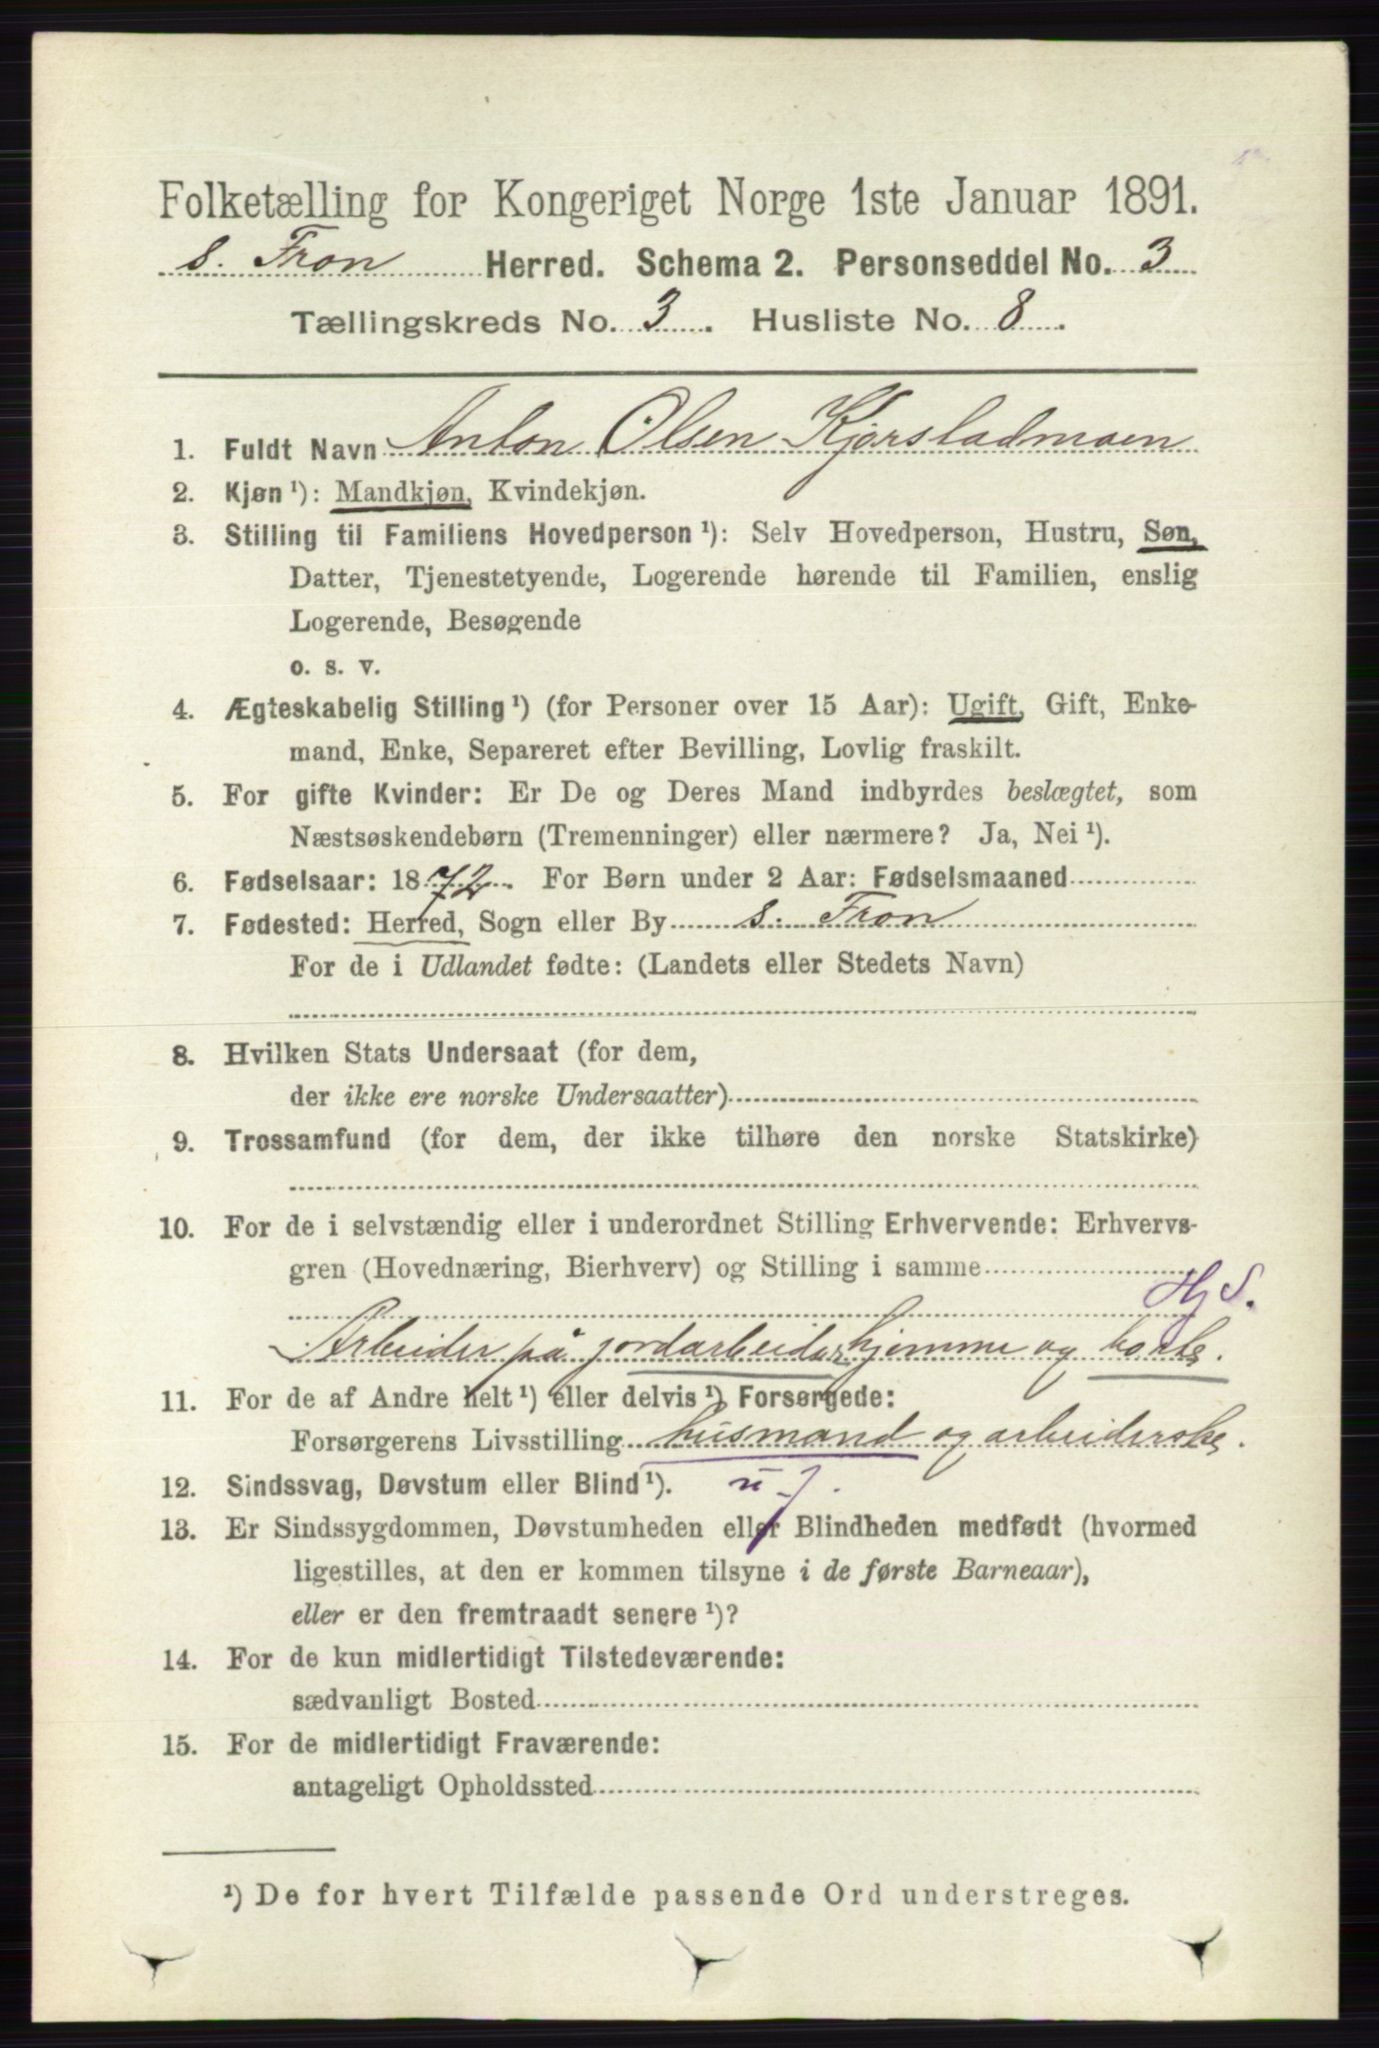 Folketælling for Kongeriget Norge 1ste Januar 1891.
S. Fron Herred. Schema 2. Personseddel No. 3
Tællingskreds No. 3. Husliste No. 8.
1. Fuldt Navn Anton Olsen Kjorstadmoen
2. Kjøn ¹): Mandkjøn, Kvindekjøn.
3. Stilling til Familiens Hovedperson ¹): Selv Hovedperson, Hustru, Søn,
Datter, Tjenestetyende, Logerende hørende til Familien, enslig
Logerende, Besøgende
o. s. v.
4. Ægteskabelig Stilling ¹) (for Personer over 15 Aar): Ugift, Gift, Enke-
mand, Enke, Separeret efter Bevilling, Lovlig fraskilt.
5. For gifte Kvinder: Er De og Deres Mand indbyrdes beslægtet, som
Næstsøskendebørn (Tremenninger) eller nærmere? Ja, Nei ¹).
6. Fødselsaar: 1872. For Børn under 2 Aar: Fødselsmaaned
7. Fødested: Herred, Sogn eller By S. Fron
For de i Udlandet fødte: (Landets eller Stedets Navn)
8. Hvilken Stats Undersaat (for dem,
der ikke ere norske Undersaatter)
9. Trossamfund (for dem, der ikke tilhøre den norske Statskirke)
10. For de i selvstændig eller i underordnet Stilling Erhvervende: Erhvervs-
gren (Hovednæring, Bierhverv) og Stilling i samme
Hj S.
Arbeider på jordarbeider hjemme og borte.
11. For de af Andre helt ¹) eller delvis ¹) Forsørgede:
Forsørgerens Livsstilling husmand og arbeiderske.
12. Sindssvag, Døvstum eller Blind ¹).
13. Er Sindssygdommen, Døvstumheden eller Blindheden medfødt (hvormed
ligestilles, at den er kommen tilsyne i de første Barneaar),
eller er den fremtraadt senere ¹)?
14. For de kun midlertidigt Tilstedeværende:
sædvanligt Bosted
15. For de midlertidigt Fraværende:
antageligt Opholdssted
¹) De for hvert Tilfælde passende Ord understreges.